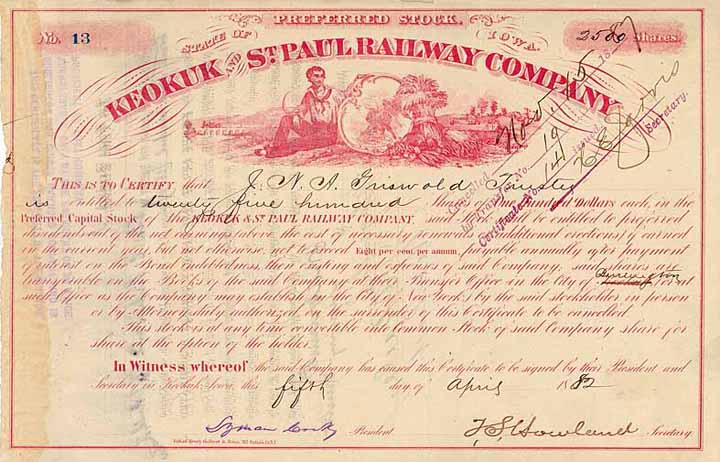 PREFERRED STOCK.
No. 13 STATE OF IOWA. 2500 Shares
KEOKUK AND ST. PAUL RAILWAY COMPANY
THIS IS TO CERTIFY that J. N. A. Griswold Trustee
is entitled to twenty five hundred Shares of One Hundred Dollars each, in the
Preferred Capital Stock of the KEOKUK & ST. PAUL RAILWAY COMPANY, said shares to be entitled to preferred
dividends out of the net earnings above the cost of necessary renewals & additional erections, if earned
in the current year, but not otherwise, not to exceed Eight per cent. per annum, payable annually after payment
of interest on the Bond Indebtedness, then existing and expenses of said Company, said shares are
transferable on the Books of the said Company at their Transfer Office in the City of Burlington (or at
such Office as the Company may establish in the City of New York) by the said stockholder in person
or by Attorney duly authorized on the surrender of this Certificate to be cancelled.
This stock is at any time convertible into Common Stock of said Company share for
share at the option of the holder.
In Witness whereof the said Company has caused this Certificate to be signed by their President and
Secretary in Keokuk, Iowa, this fifth day of April 1882
Lyman Cook President T. S. Howland Secretary.
Cancelled Nov 15 1887
Certificate No. 14 issued
Secretary.